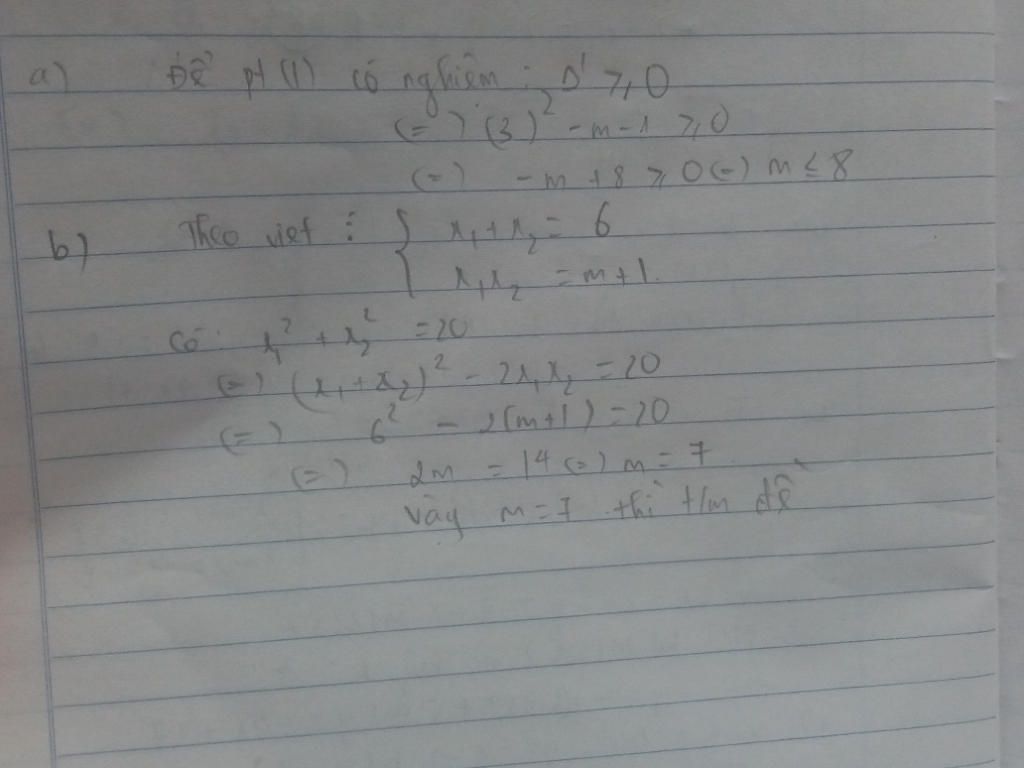 a) Để pt (1) có nghiệm : Δ' ≥ 0
(=) (3)² - m - 1 ≥ 0
(=) - m + 8 ≥ 0 (=) m ≤ 8
b) Theo viet : { x₁ + x₂ = 6
x₁x₂ = m + 1
Có x₁² + x₂² = 20
(=) (x₁ + x₂)² - 2x₁x₂ = 20
(=) 6² - 2(m+1) = 20
(=) 2m = 14 (=) m = 7
Vậy m = 7 thì t/m đề